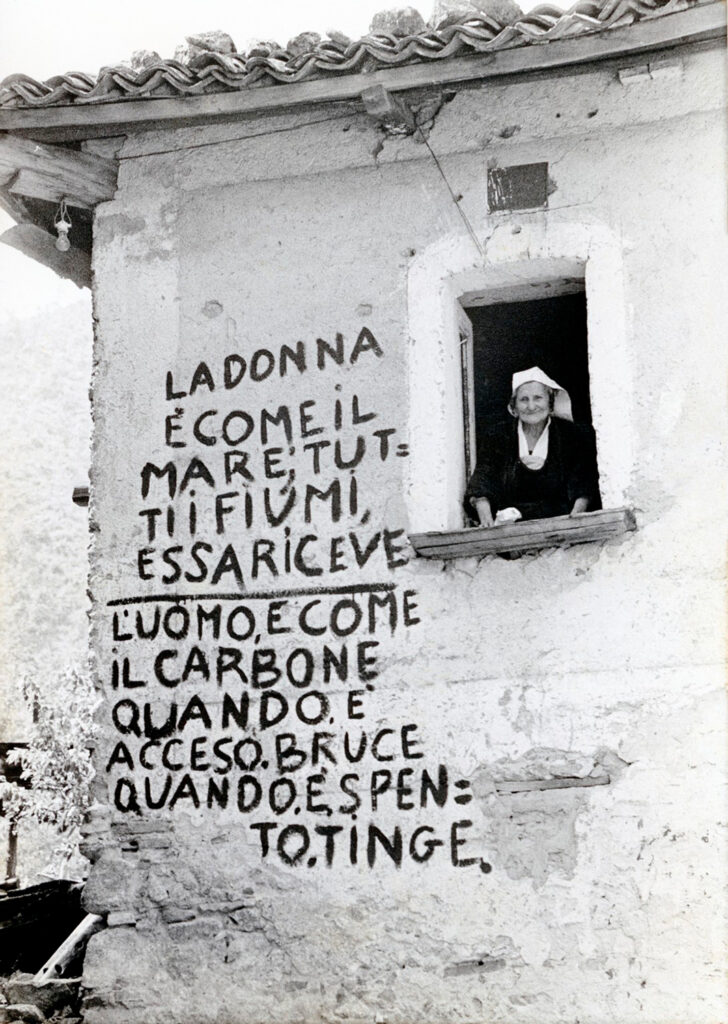 LA DONNA
È COME IL
MARE; TUT=
TI I FIUMI,
ESSA RICEVE
L'UOMO, E COME
IL CARBONE
QUANDO. E'
ACCESO. BRUCE
QUANDO. E, SPEN=
TO. TINGE.